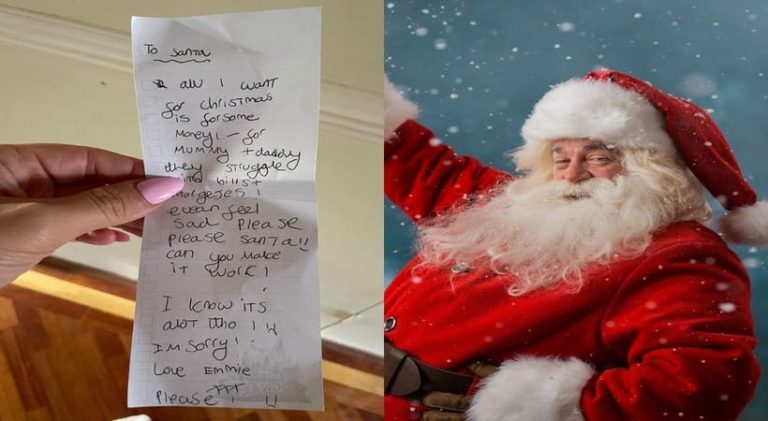 To Santa
all I want
for christmas
is for some
money! - for
mummy + daddy
they struggle
with bills +
morgeges I
evean feel
sad Please
Please santa!!
can you make
it work!
I know its
alot tho!
I'm sorry!
Love Emmie
Please!